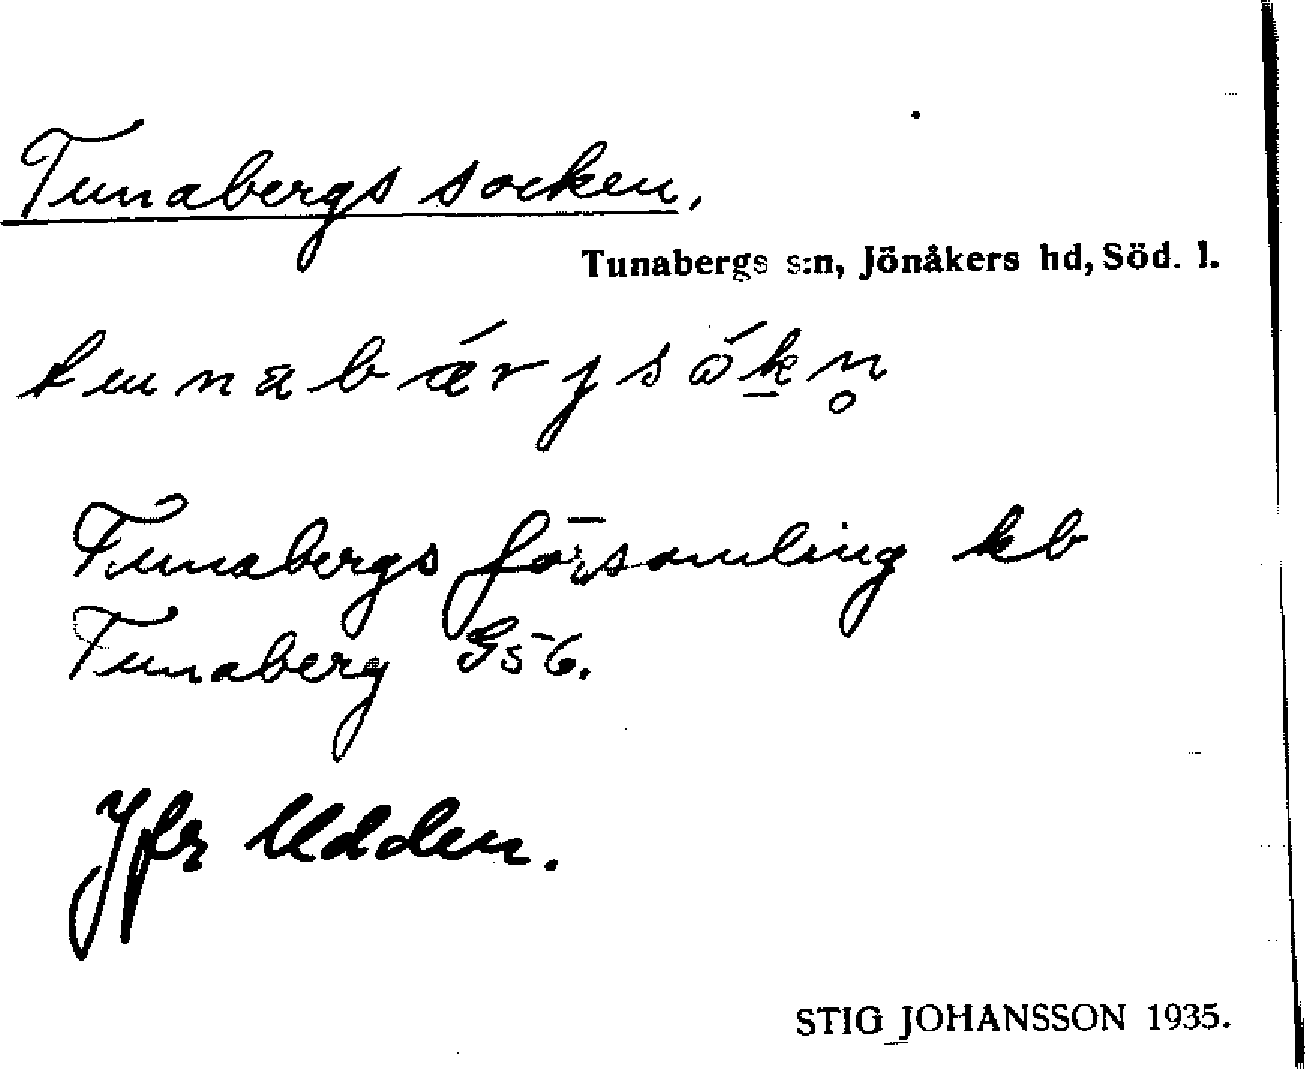 Tunabergs socken,
Tunabergs s:n, Jönåkers hd, Söd. l.
Tunabergs församling kb
Tunaberg G56.
Jfr Udden.
STIG JOHANSSON 1935.